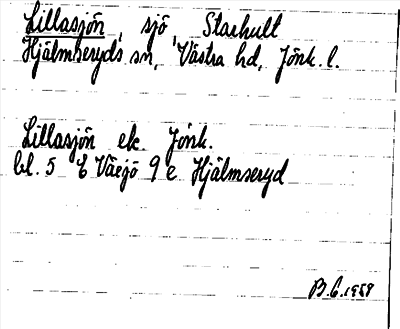 Lillasjön, sjö, Starhult
Hjälmseryds sn, Västra hd, Jönk. l.
Lillasjön ek. Jönk.
bl. 5 E Växjö 9 e Hjälmseryd
B.C. 1959